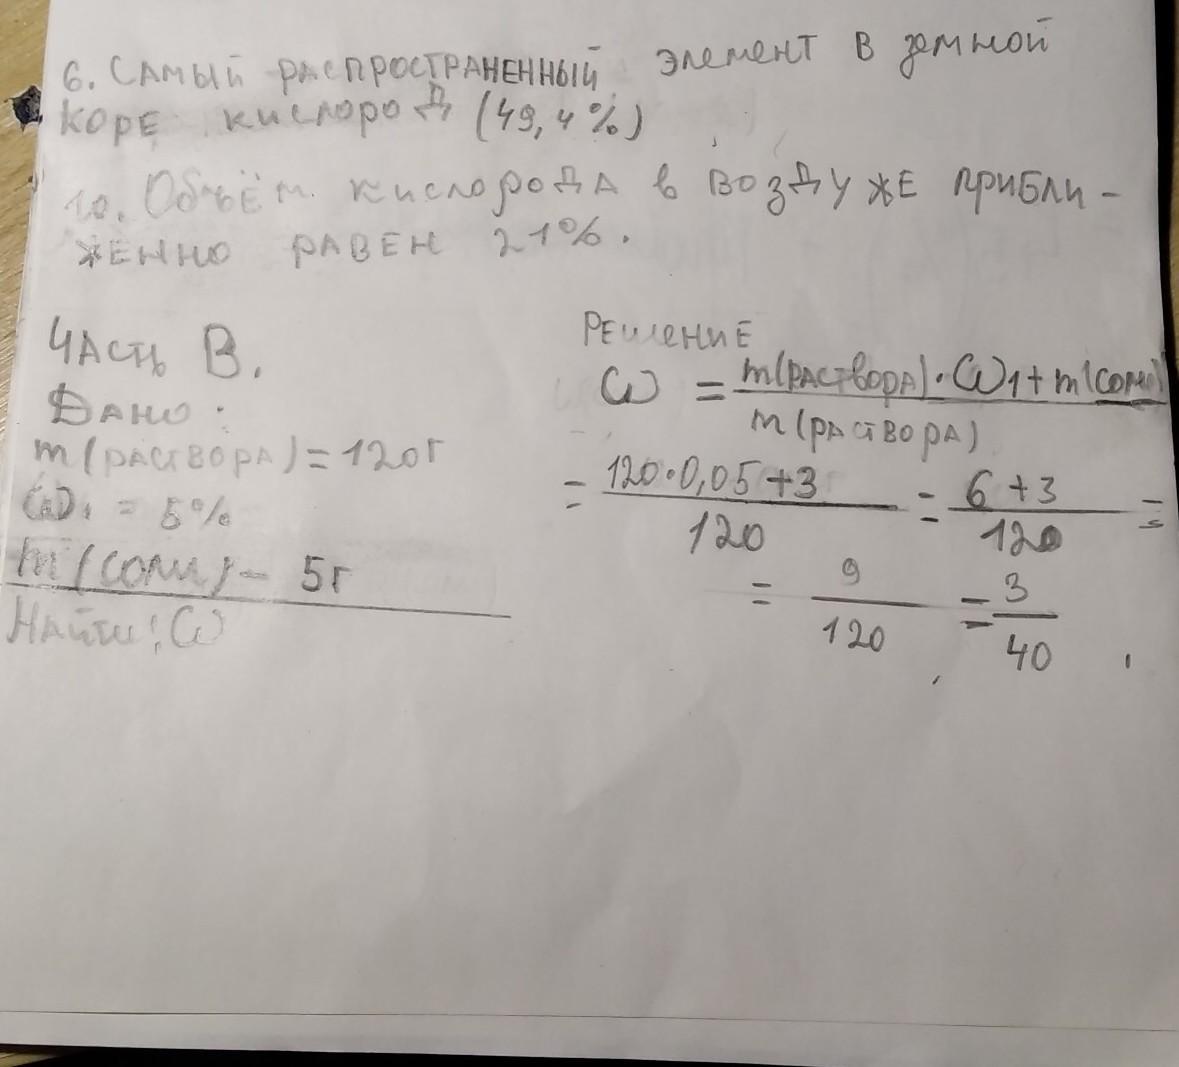 6. Самый распространенный элемент в земной
коре кислород (49,4%)
10. Объём кислорода в воздуже прибли-
женно равен 21%.
Часть В.
Дано:
m(раствора) = 120г
ω₁ = 5%
m(соли) - 5г
Найти: ω
Решение
ω = m(раствора)·ω1 + m(соли) / m(раствора)
= 120·0,05+3 / 120 = 6+3 / 120 =
= 9 / 120 = 3 / 40